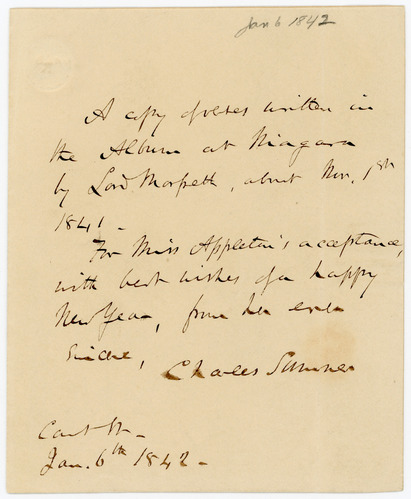 Jan 6 1842
A copy of lines written in
the Album at Niagara
by Lord Morpeth, about Nov. 1st
1841 -
For Miss Appleton's acceptance,
with best wishes of a happy
New Year, from her ever
sincere,
Charles Sumner
Court St -
Jan. 6th 1842 -